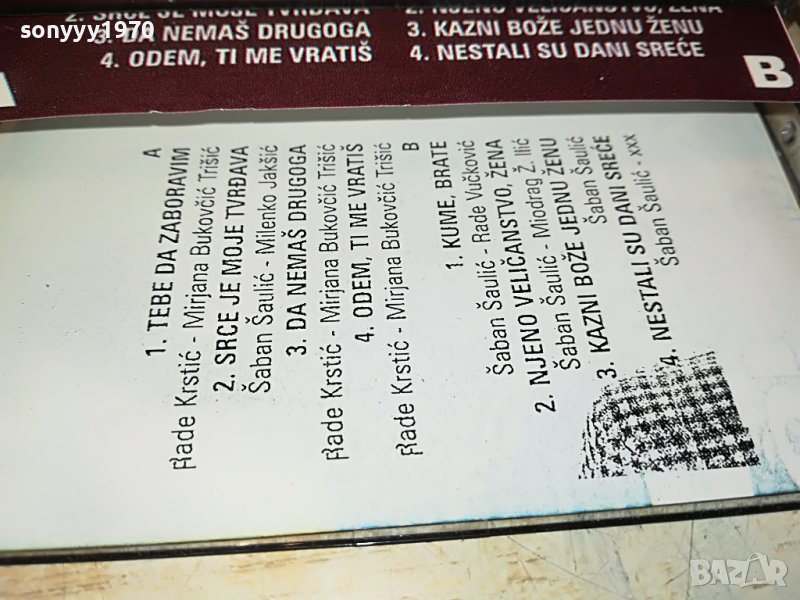 sonyyy1970
2. SRCE JE MOJE TVRĐAVA
3. DA NEMAŠ DRUGOGA
4. ODEM, TI ME VRATIŠ
2. NJENO VELIČANSTVO, ŽENA
3. KAZNI BOŽE JEDNU ŽENU
4. NESTALI SU DANI SREĆE
B
A
1. TEBE DA ZABORAVIM
Rade Krstić - Mirjana Bukovčić Trišić
2. SRCE JE MOJE TVRĐAVA
Šaban Šaulić - Milenko Jakšić
3. DA NEMAŠ DRUGOGA
Rade Krstić - Mirjana Bukovčić Trišić
4. ODEM, TI ME VRATIŠ
Rade Krstić - Mirjana Bukovčić Trišić
B
1. KUME, BRATE
Šaban Šaulić - Rade Vučković
2. NJENO VELIČANSTVO, ŽENA
Šaban Šaulić - Miodrag Ž. Ilić
3. KAZNI BOŽE JEDNU ŽENU
Šaban Šaulić
4. NESTALI SU DANI SREĆE
Šaban Šaulić - xxx
BAZAR